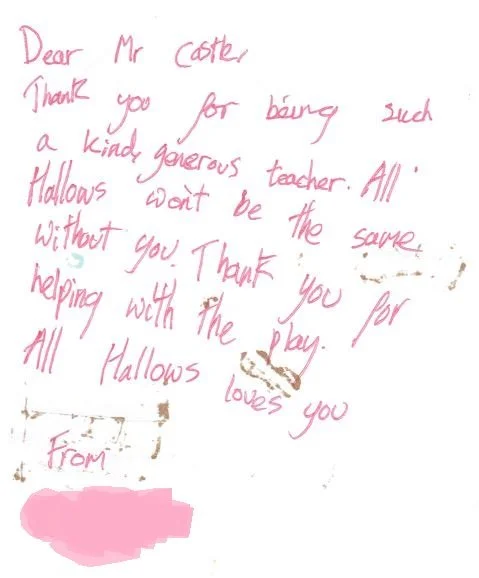 Dear Mr Castle,
Thank you for being such
a kind, generous teacher. All
Hallows won't be the same
without you. Thank you for
helping with the play.
All Hallows loves you
From